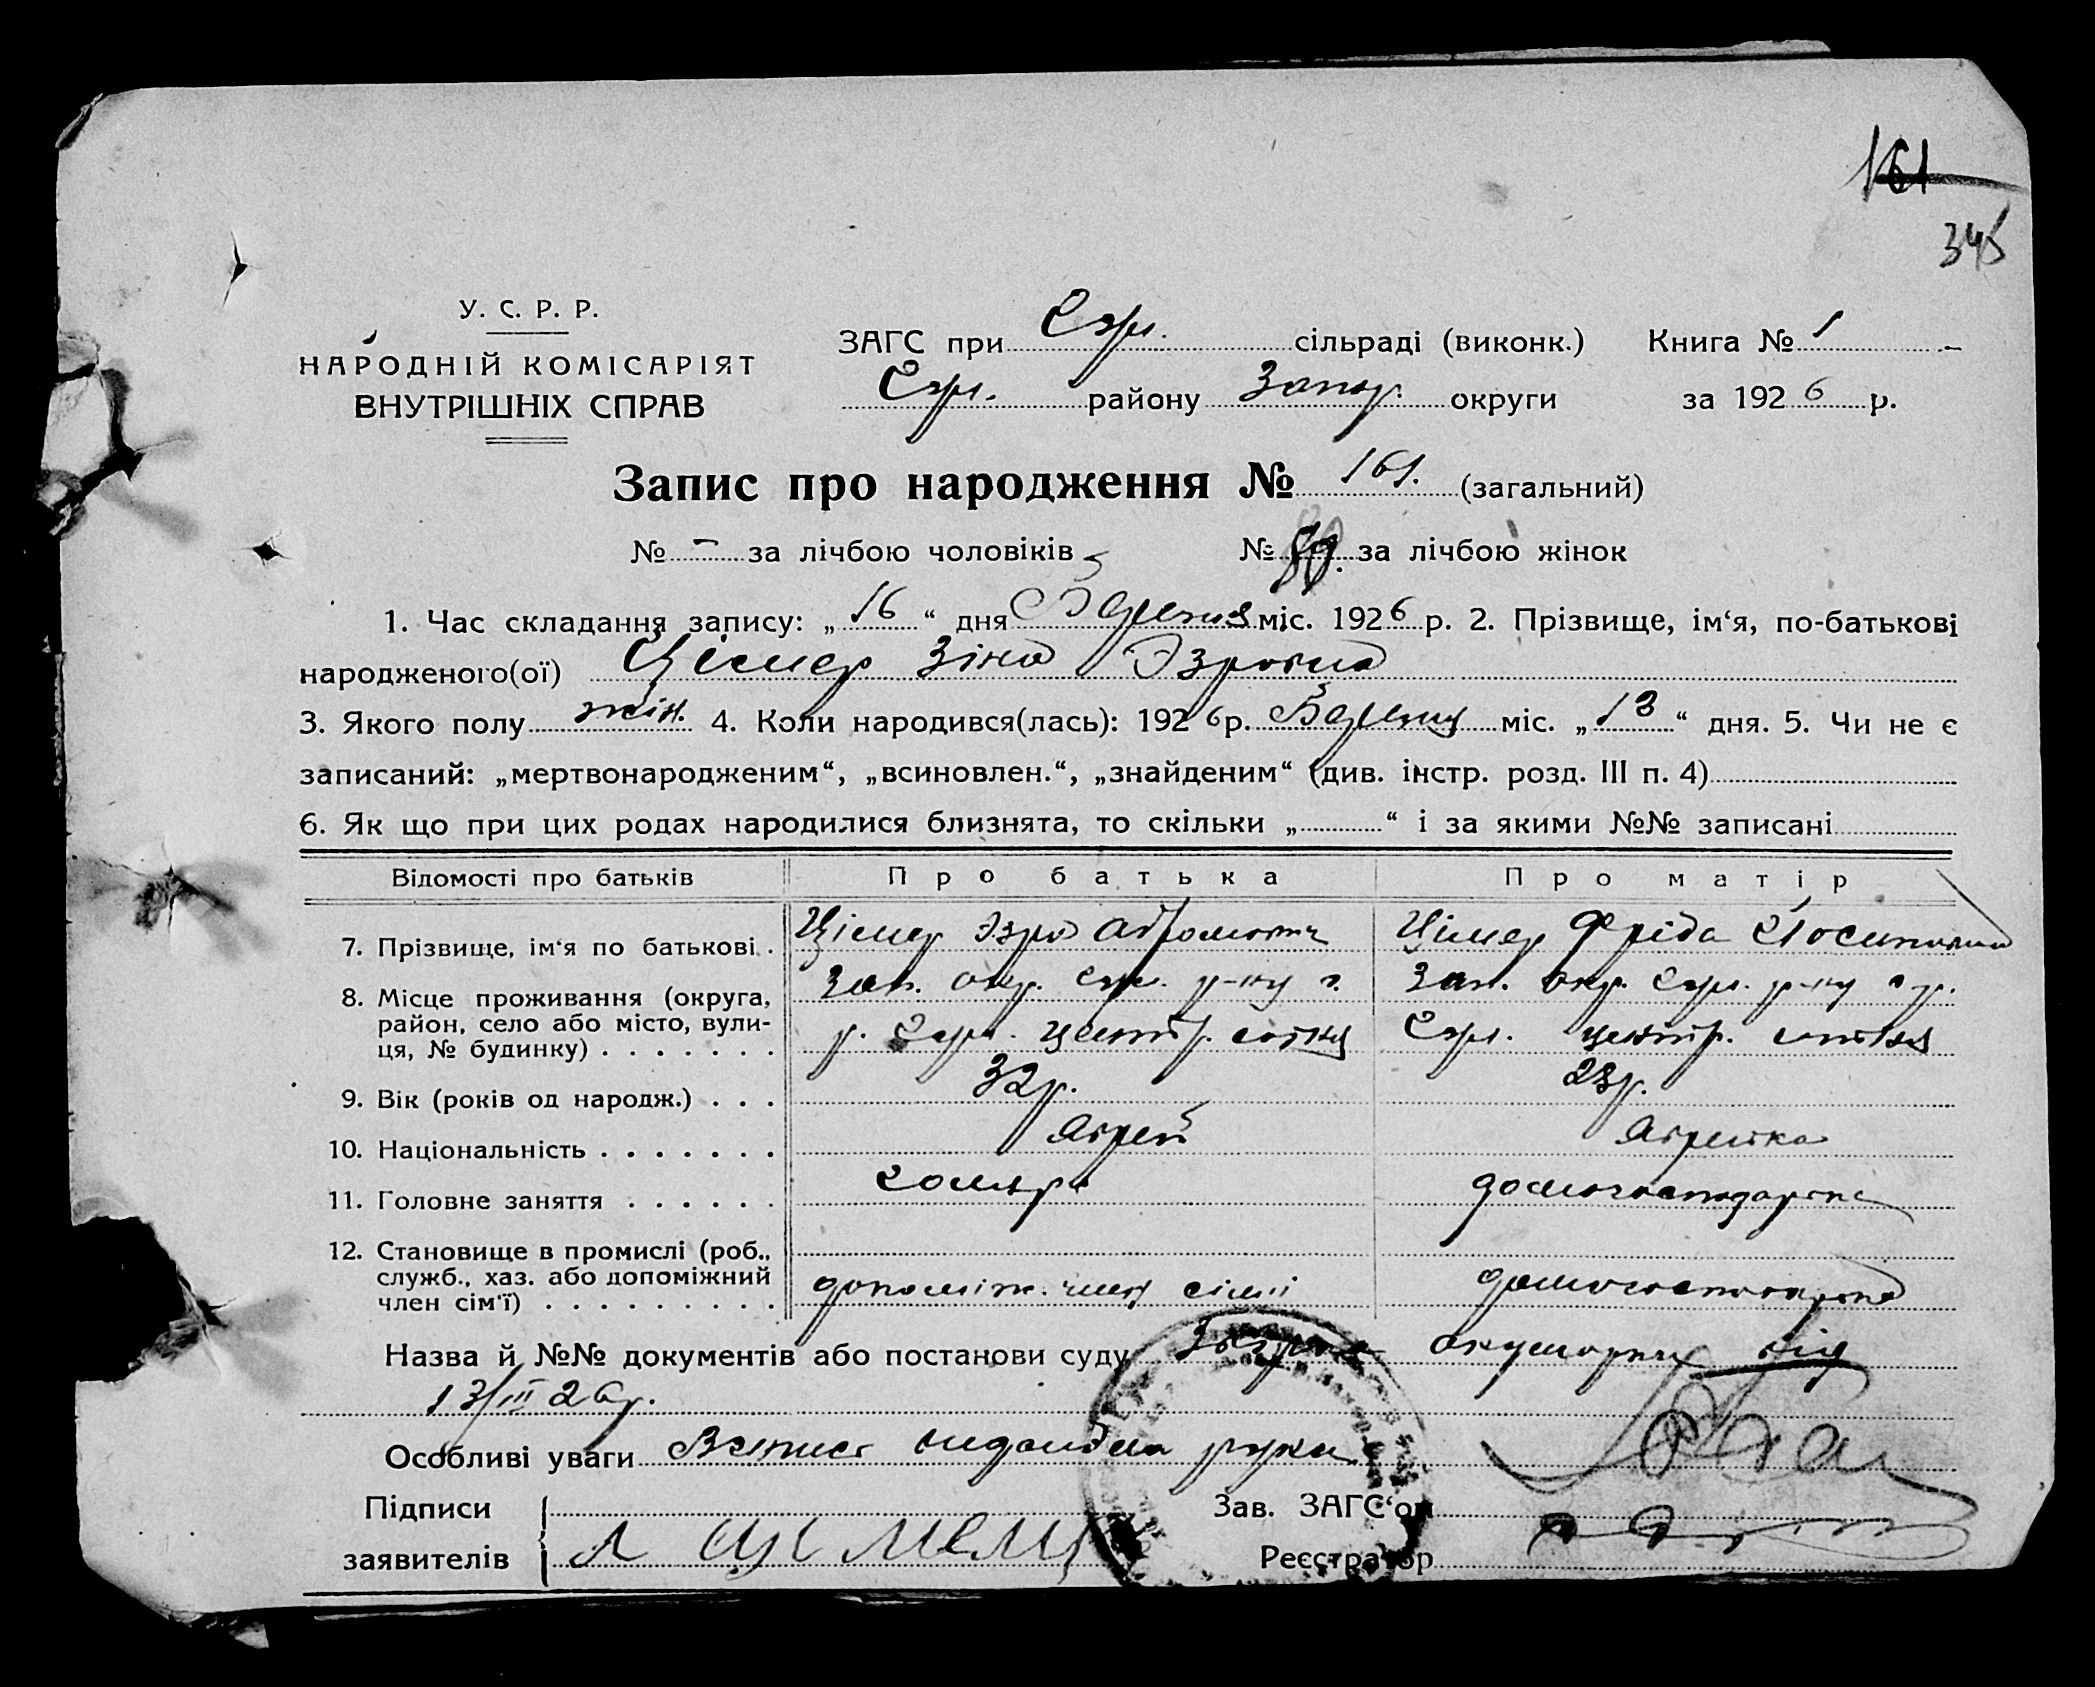 161
345
У. С. Р. Р.
НАРОДНІЙ КОМІСАРІЯТ
ВНУТРІШНІХ СПРАВ
ЗАГС при сільраді (виконк.) Книга № 1
району Запор. округи за 1926 р.
Запис про народження № 161. (загальний)
№ - за лічбою чоловіків № 80. за лічбою жінок
1. Час складання запису: „16“ дня Березня міс. 1926 р. 2. Прізвище, ім‘я, по-батькові
народженого(ої) Цімер Зіна Эзровна
3. Якого полу жін. 4. Коли народився(лась): 1926 р. Березня міс. „13“ дня. 5. Чи не є
записаний: „мертвонародженим“, „всиновлен.“, „знайденим“ (див. інстр. розд. III п. 4)
6. Як що при цих родах народилися близнята, то скільки „ “ і за якими №№ записані
Відомості про батьків Про батька Про матір
7. Прізвище, ім‘я по батькові. Цімер Эзра Абрамович Цімер Фріда Йосиповна
8. Місце проживання (округа, Зап. окр. р-ну Зап. окр. р-ну
район, село або місто, вули- центр. сотня центр. сотня
ця, № будинку)
9. Вік (років од народж.) 32 р. 23 р.
10. Національність Яврей Явреика
11. Головне заняття домогосподарка
12. Становище в промислі (роб.,
служб., хаз. або допоміжний допоміж. член сімї домогосподарка
член сім‘ї)
Назва й №№ документів або постанови суду акушерки від
13/III 26 р.
Особливі уваги Выпись видана на руки
Підписи Зав. ЗАГС‘ом
заявителів Реєстратор